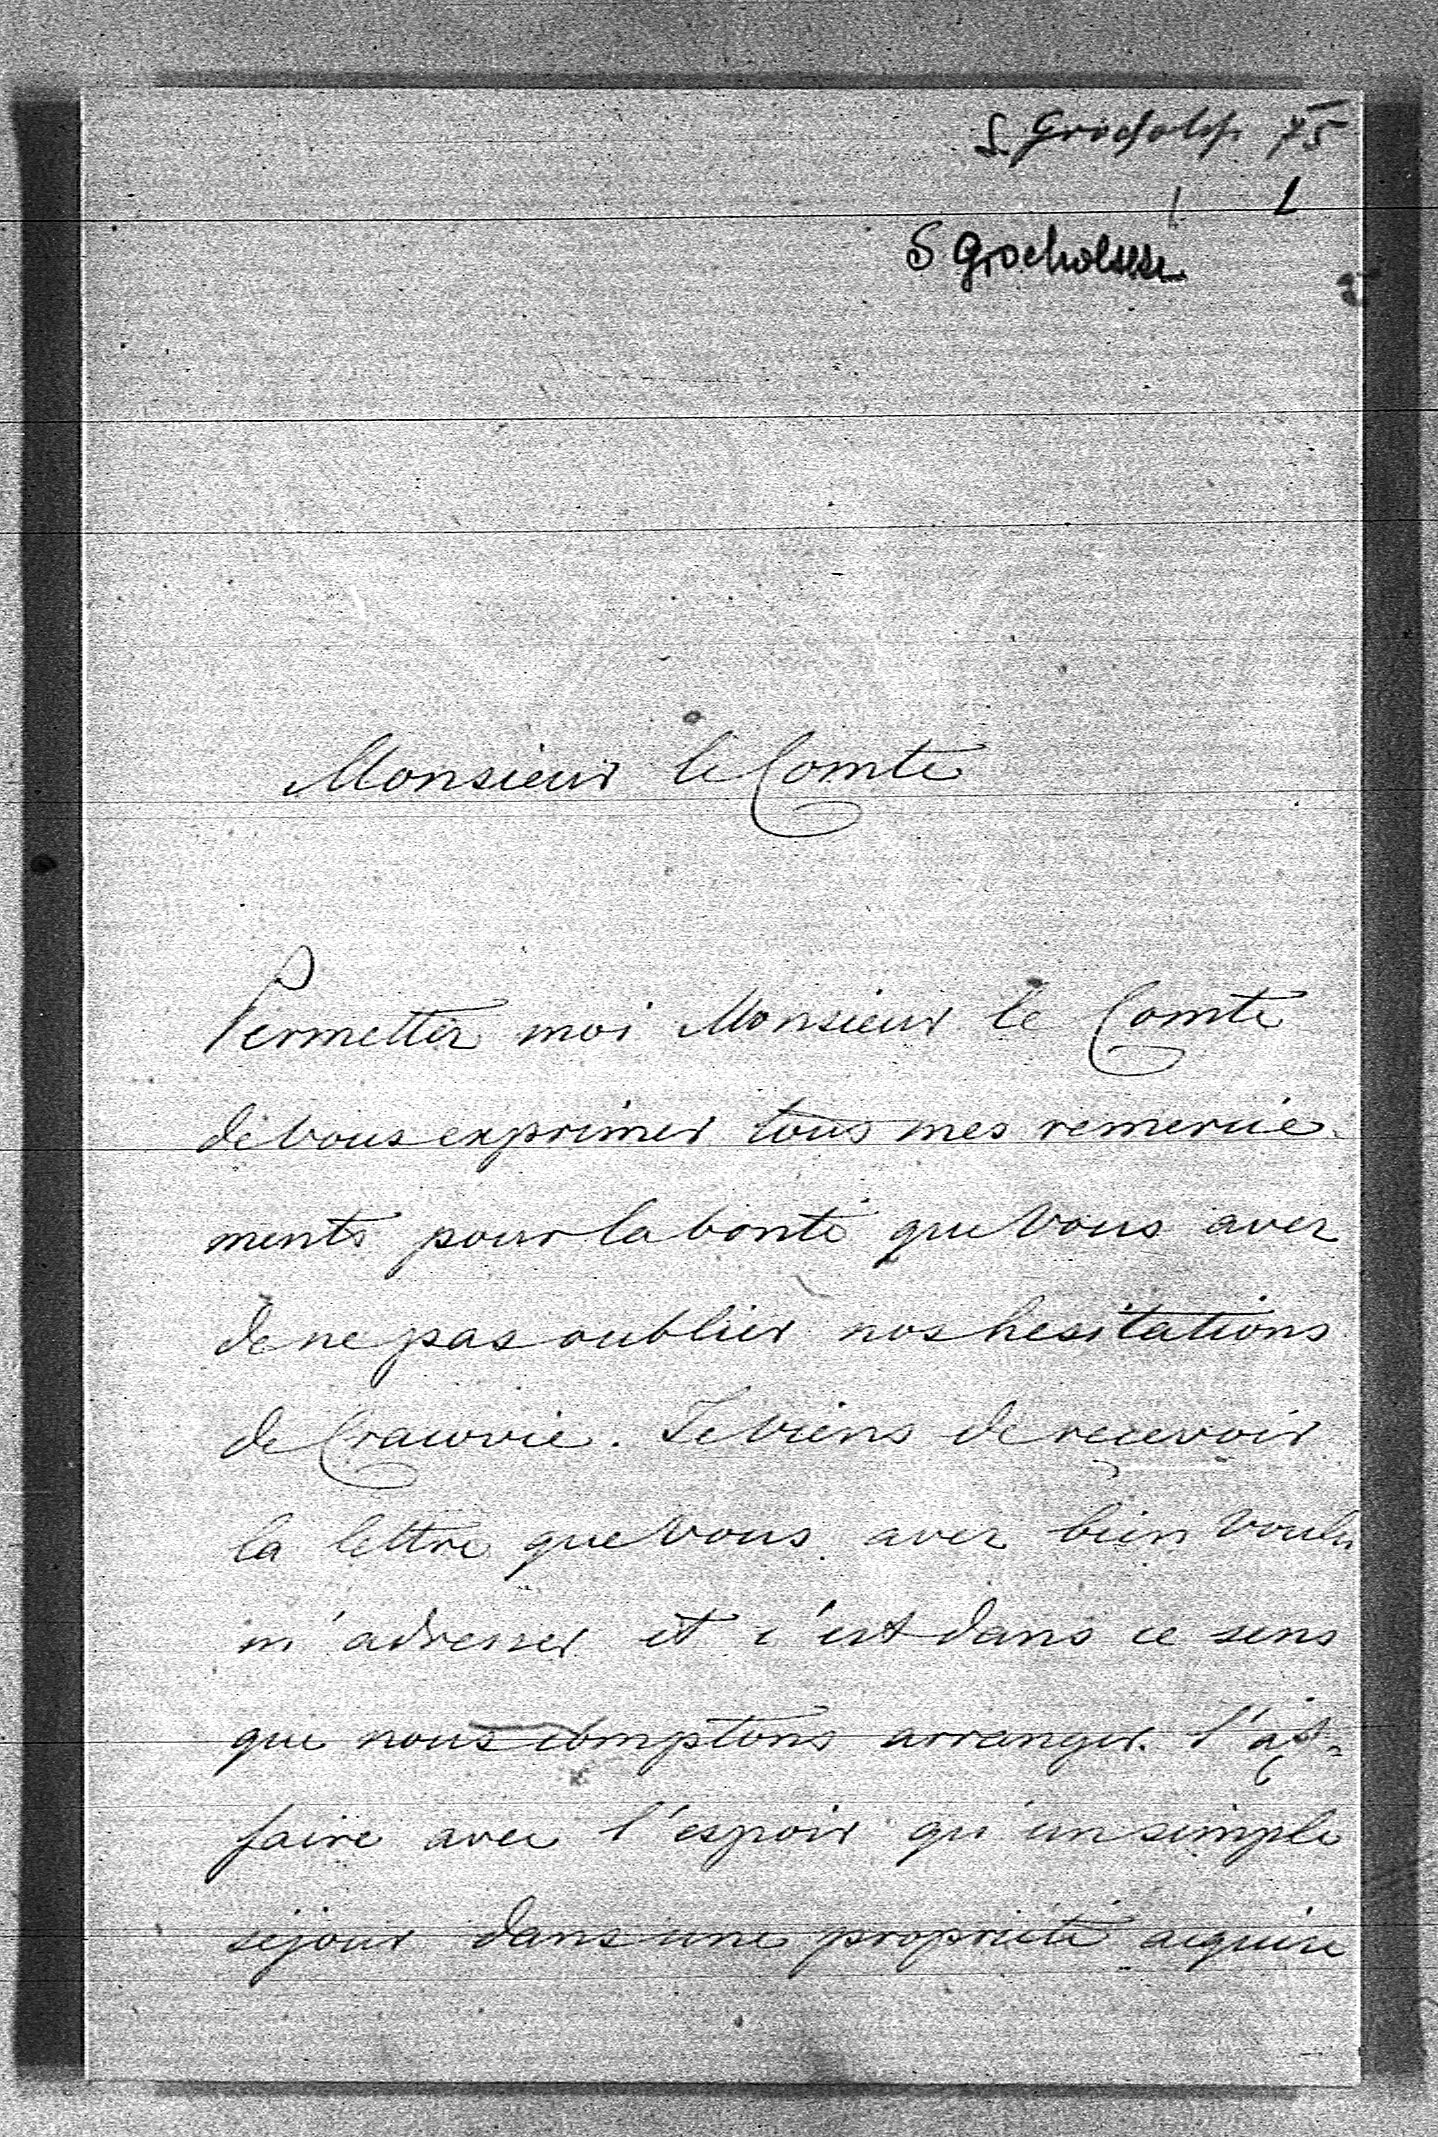 S. Grocholski 75
1
S Grocholski
Monsieur le Comte
Permettez moi Monsieur le Comte
de Vous exprimer tous mes remercie-
ments pour la bonté que Vous avez
de ne pas oublier nos hesitations
de Cracovie. Je viens de recevoir
la lettre que Vous avez bien Voulu
m'adresser et c'est dans ce sens
que nous comptons arranger l'af=
faire avec l'espoir qu'un simple
séjour dans une propriété acquise